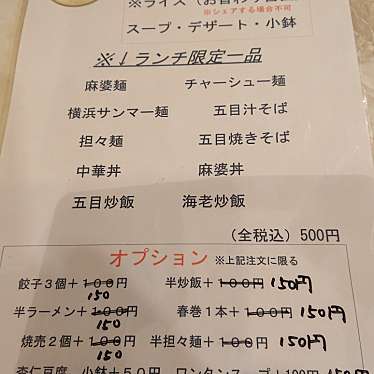 ※ライス（お替わり
※シェアする場合不可
スープ・デザート・小鉢
※↓ランチ限定一品
麻婆麺 チャーシュー麺
横浜サンマー麺 五目汁そば
担々麺 五目焼きそば
中華丼 麻婆丼
五目炒飯 海老炒飯
（全税込）500円
オプション ※上記注文に限る
餃子３個＋100円 150 半炒飯＋100円 150円
半ラーメン＋100円 150 春巻１本＋100円 150円
焼売２個＋100円 150 半担々麺＋100円 150円
杏仁豆腐、小鉢＋５０円 ワンタンスープ＋100円 150円